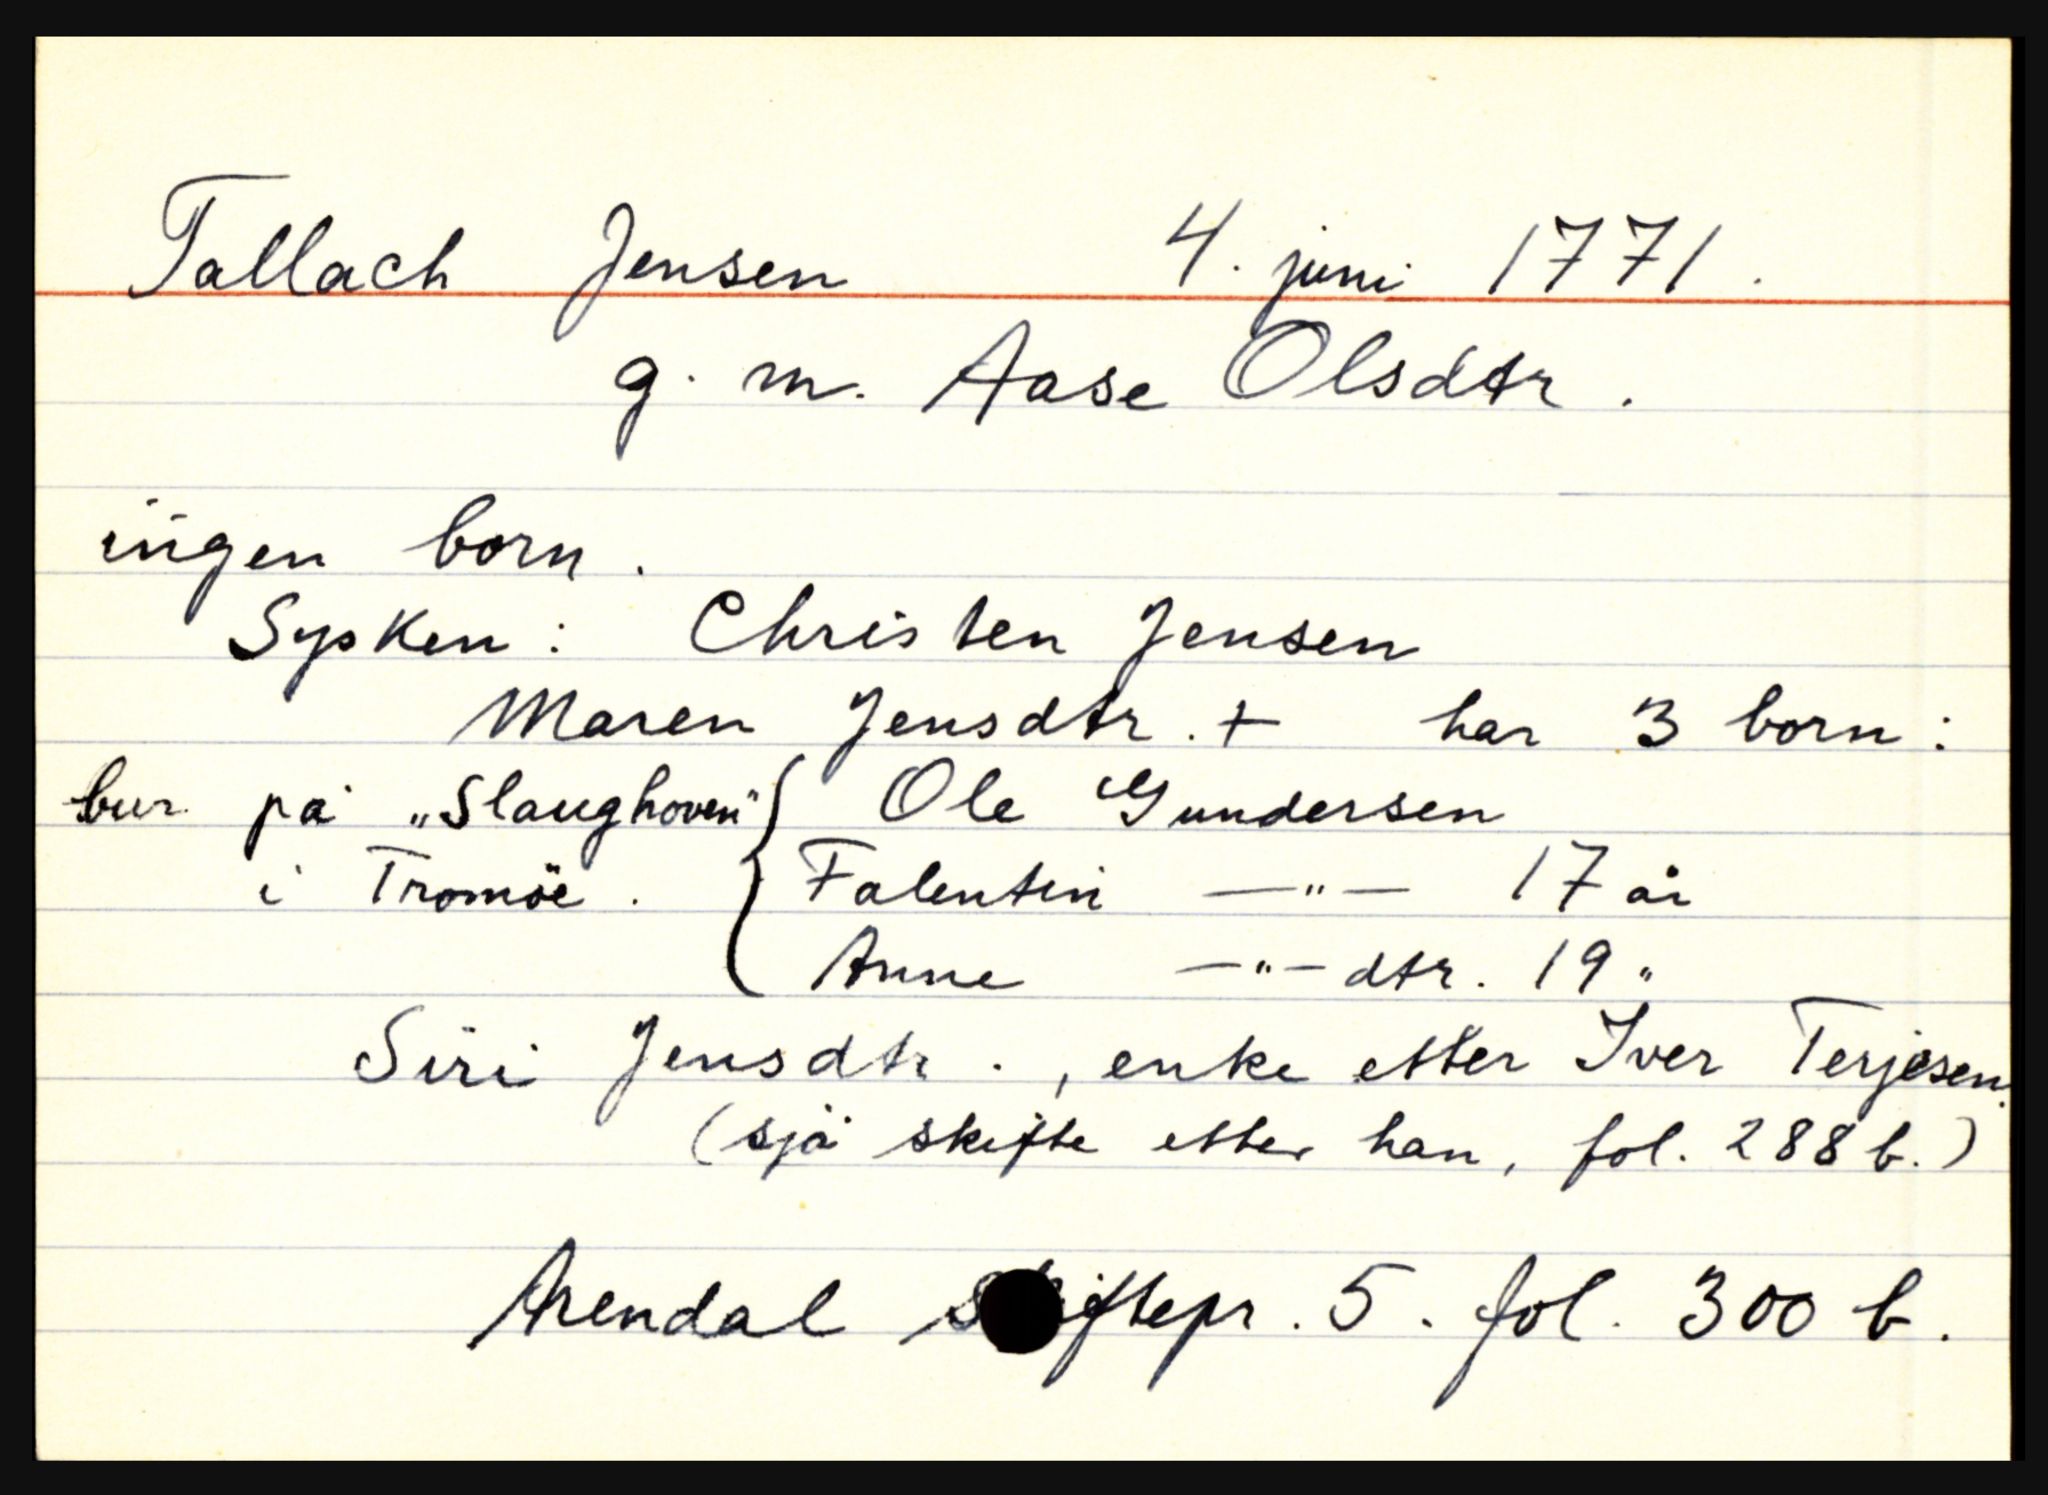 Tallach Jensen 4. juni 1771.
g. m. Aase Olsdtr.
ingen born.
Sysken: Christen Jensen
Maren Jensdtr. + har 3 born:
bur på „Slaughoven" { Ole Gundersen
i Tromöe. Falentin —"— 17 år
Anne —"— dtr. 19 "
Siri Jensdtr., enke etter Iver Terjesen.
(sjå skifte etter han, fol. 288 b.)
Arendal skiftepr. 5. fol. 300 b.